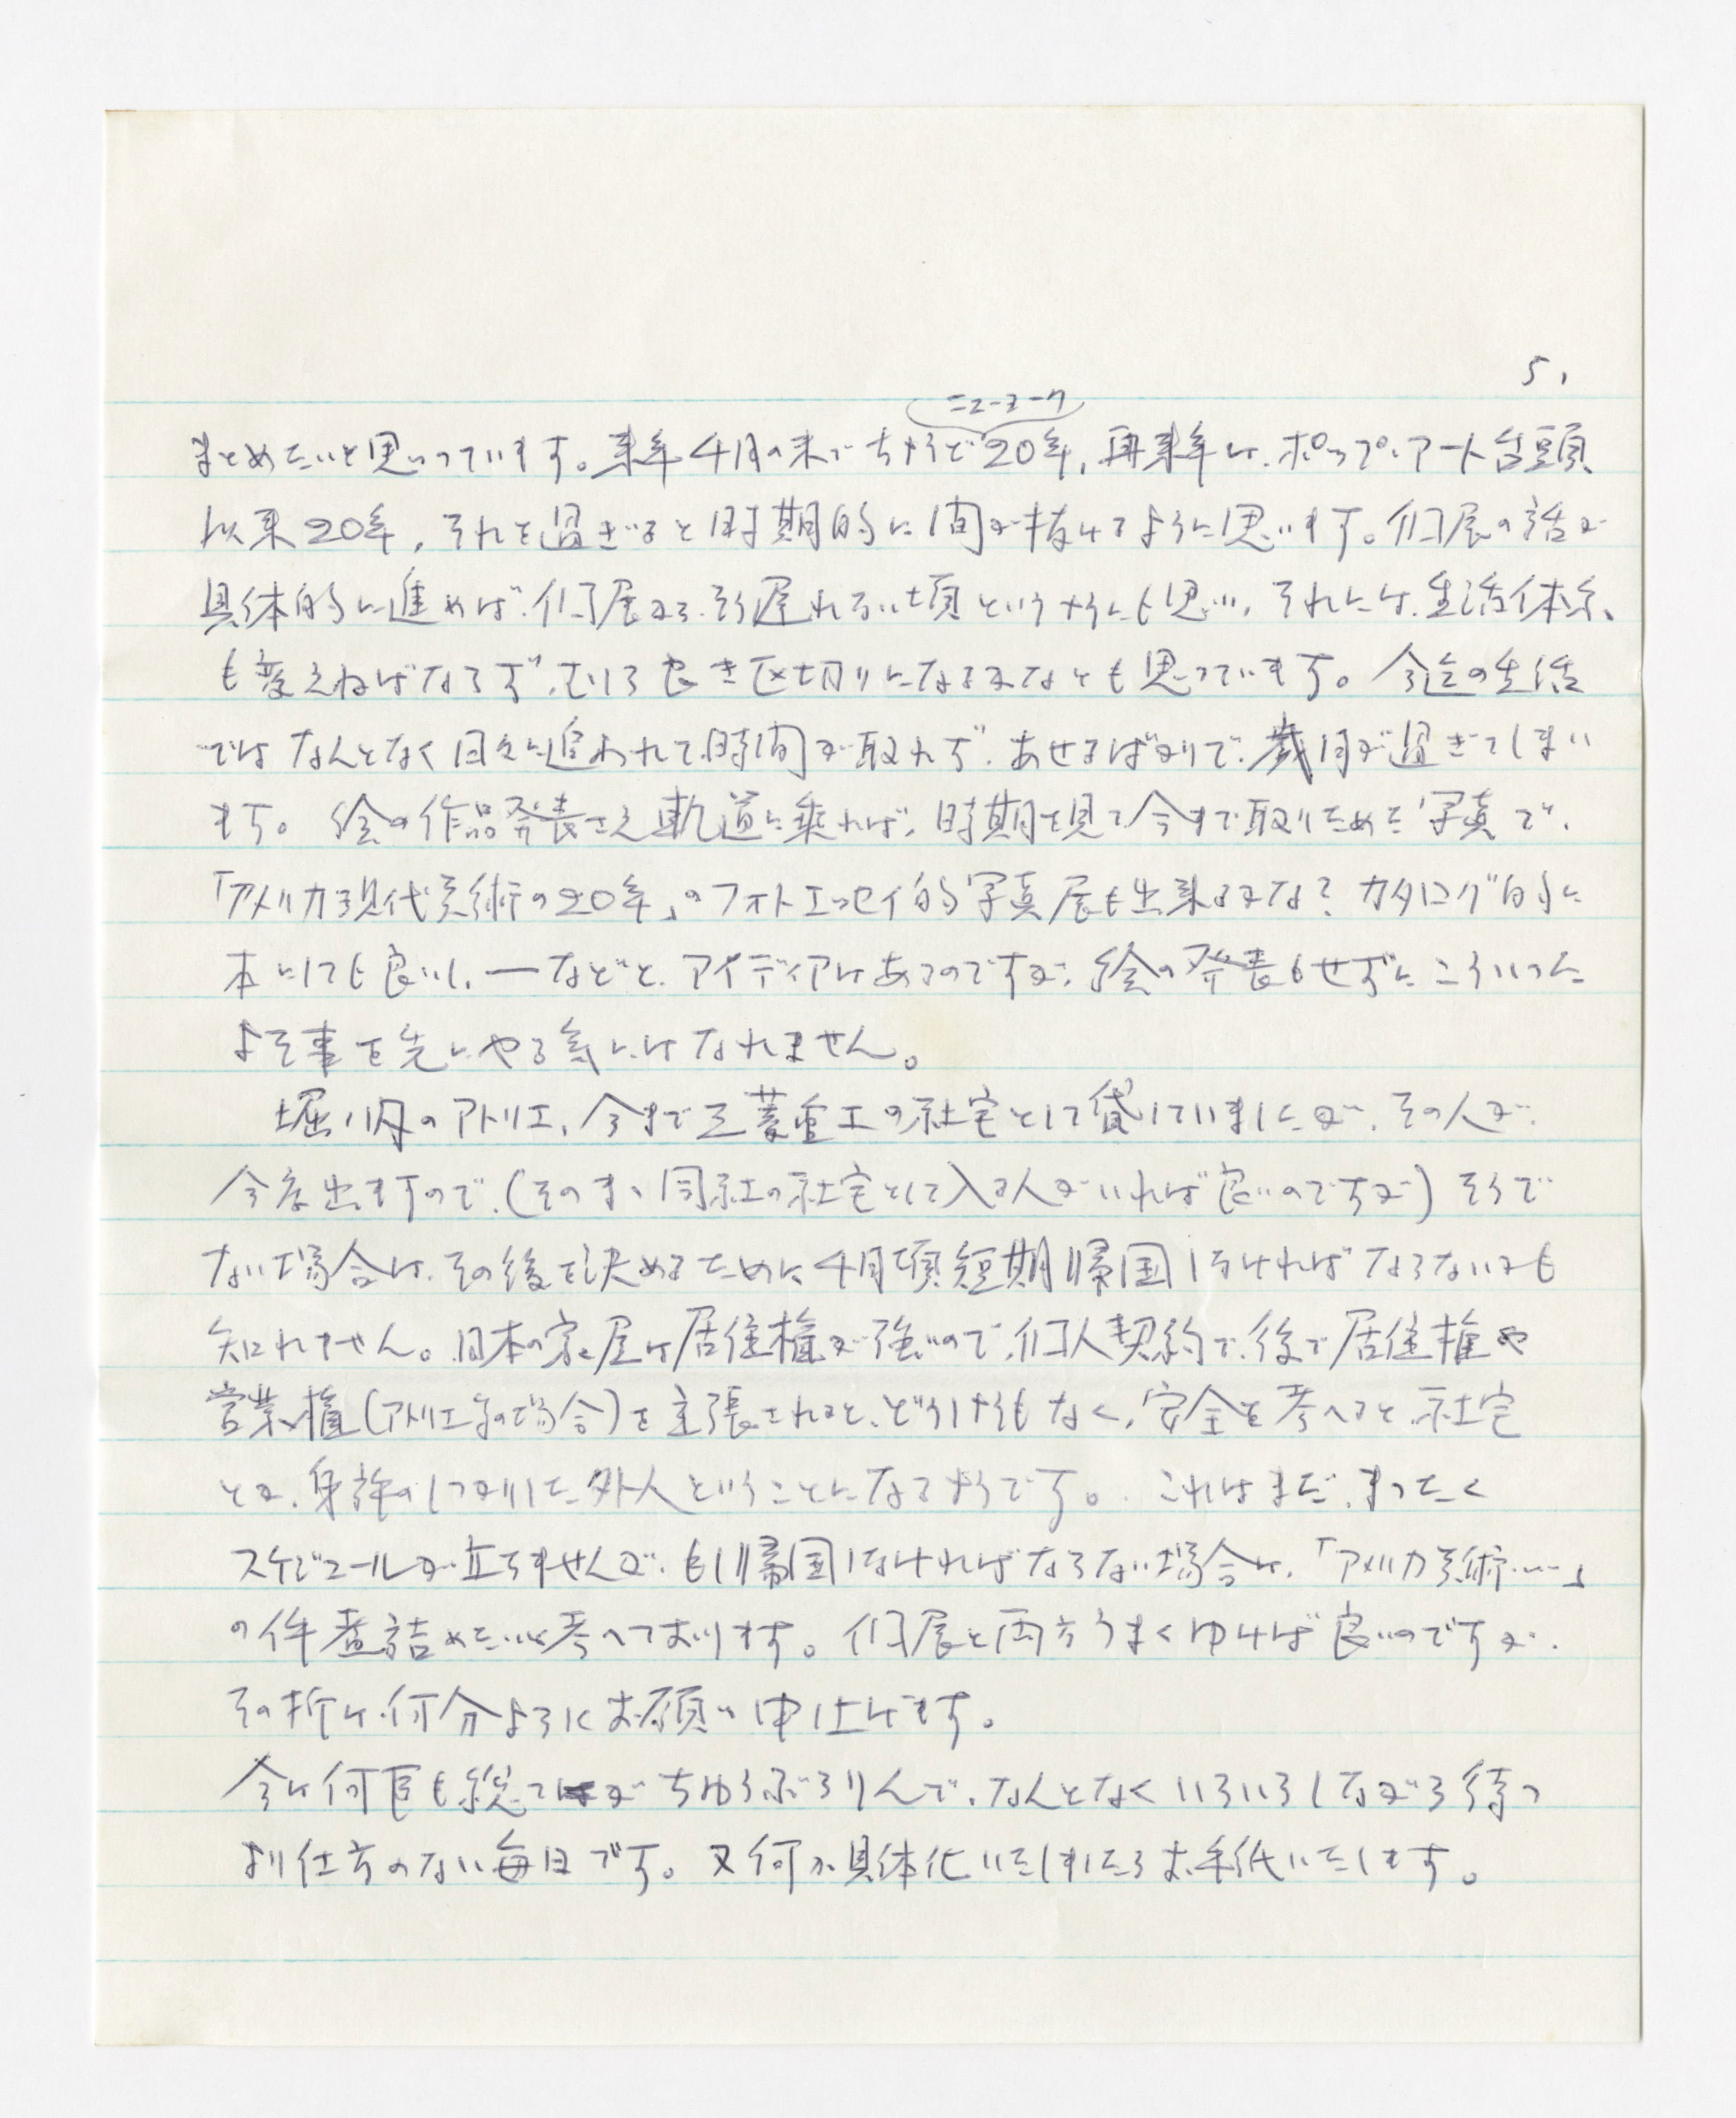 5,
ニューヨーク
まとめたいと思っています。来年4月の末でちやうど20年,再来年は、ポップ・アート台頭
以来20年,それを過ぎると時期的に間が抜けるように思います。個展の話が
具体的に進めば、個展から、そう遅れない頃というようにも思い,それには、生活体系
も変えねばならず、むしろ良き区切りになるかなとも思っています。今迄の生活
ではなんとなく日々に追われて、時間が取れず、あせるばかりで、歳月が過ぎてしまい
ます。絵の作品発表さえ軌道に乗れば、時期を見て今まで取りためた写真で、
「アメリカ現代美術の20年」のフォトエッセイ的写真展も出来るかな?カタログ的に
本にしても良いし、―などと、アイディアはあるのですが、絵の発表もせずにこういった
よそ事を先にやる気にはなれません。
堀ノ内のアトリエ、今まで三菱重工の社宅として貸していましたが、その人が、
今度出ますので、(そのまゝ同社の社宅として入る人がいれば良いのですが)そうで
ない場合は、その後を決めるために4月頃短期帰国しなければならないかも
知れません。日本の家屋は居住権が強いので、個人契約で、後で居住権や
営業権(アトリエの場合)を主張されると、どうしやうもなく,安全を考へると、社宅
とか、身許のしっかりした外人ということになるやうです。これはまだ、まったく
スケジュールが立ちませんが、もし帰国しなければならない場合は、「アメリカ美術……」
の件煮詰めたいと考へております。個展と両方うまくゆけば良いのですが、
その折は、何分よろしくお願い申し上げます。
今は何も総てがちゆうぶらりんで、なんとなくいらいらしながら待つ
より仕方のない毎日です。又何か具体化いたしましたらお手紙いたします。